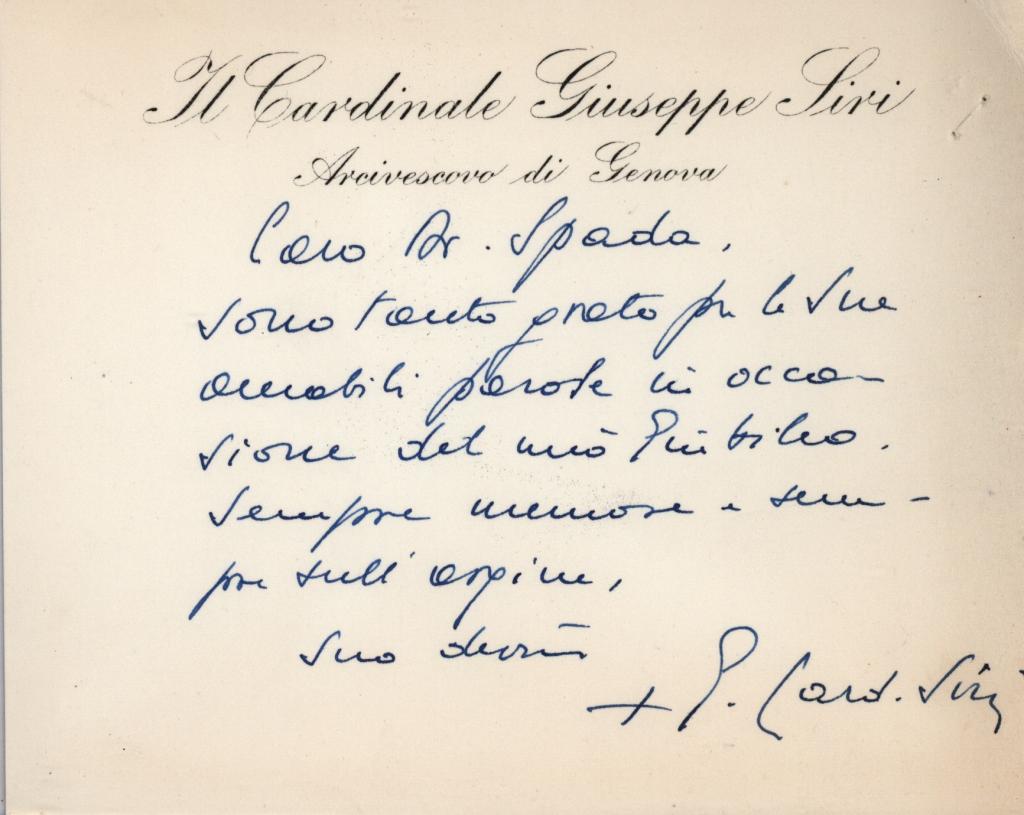 Il Cardinale Giuseppe Siri
Arcivescovo di Genova
Caro Dr. Spada,
sono tanto grato per le Sue
amabili parole in occa-
sione del mio Giubileo.
Sempre memore e sem-
pre sull'argine,
Suo dev.mo
+ G. Card. Siri